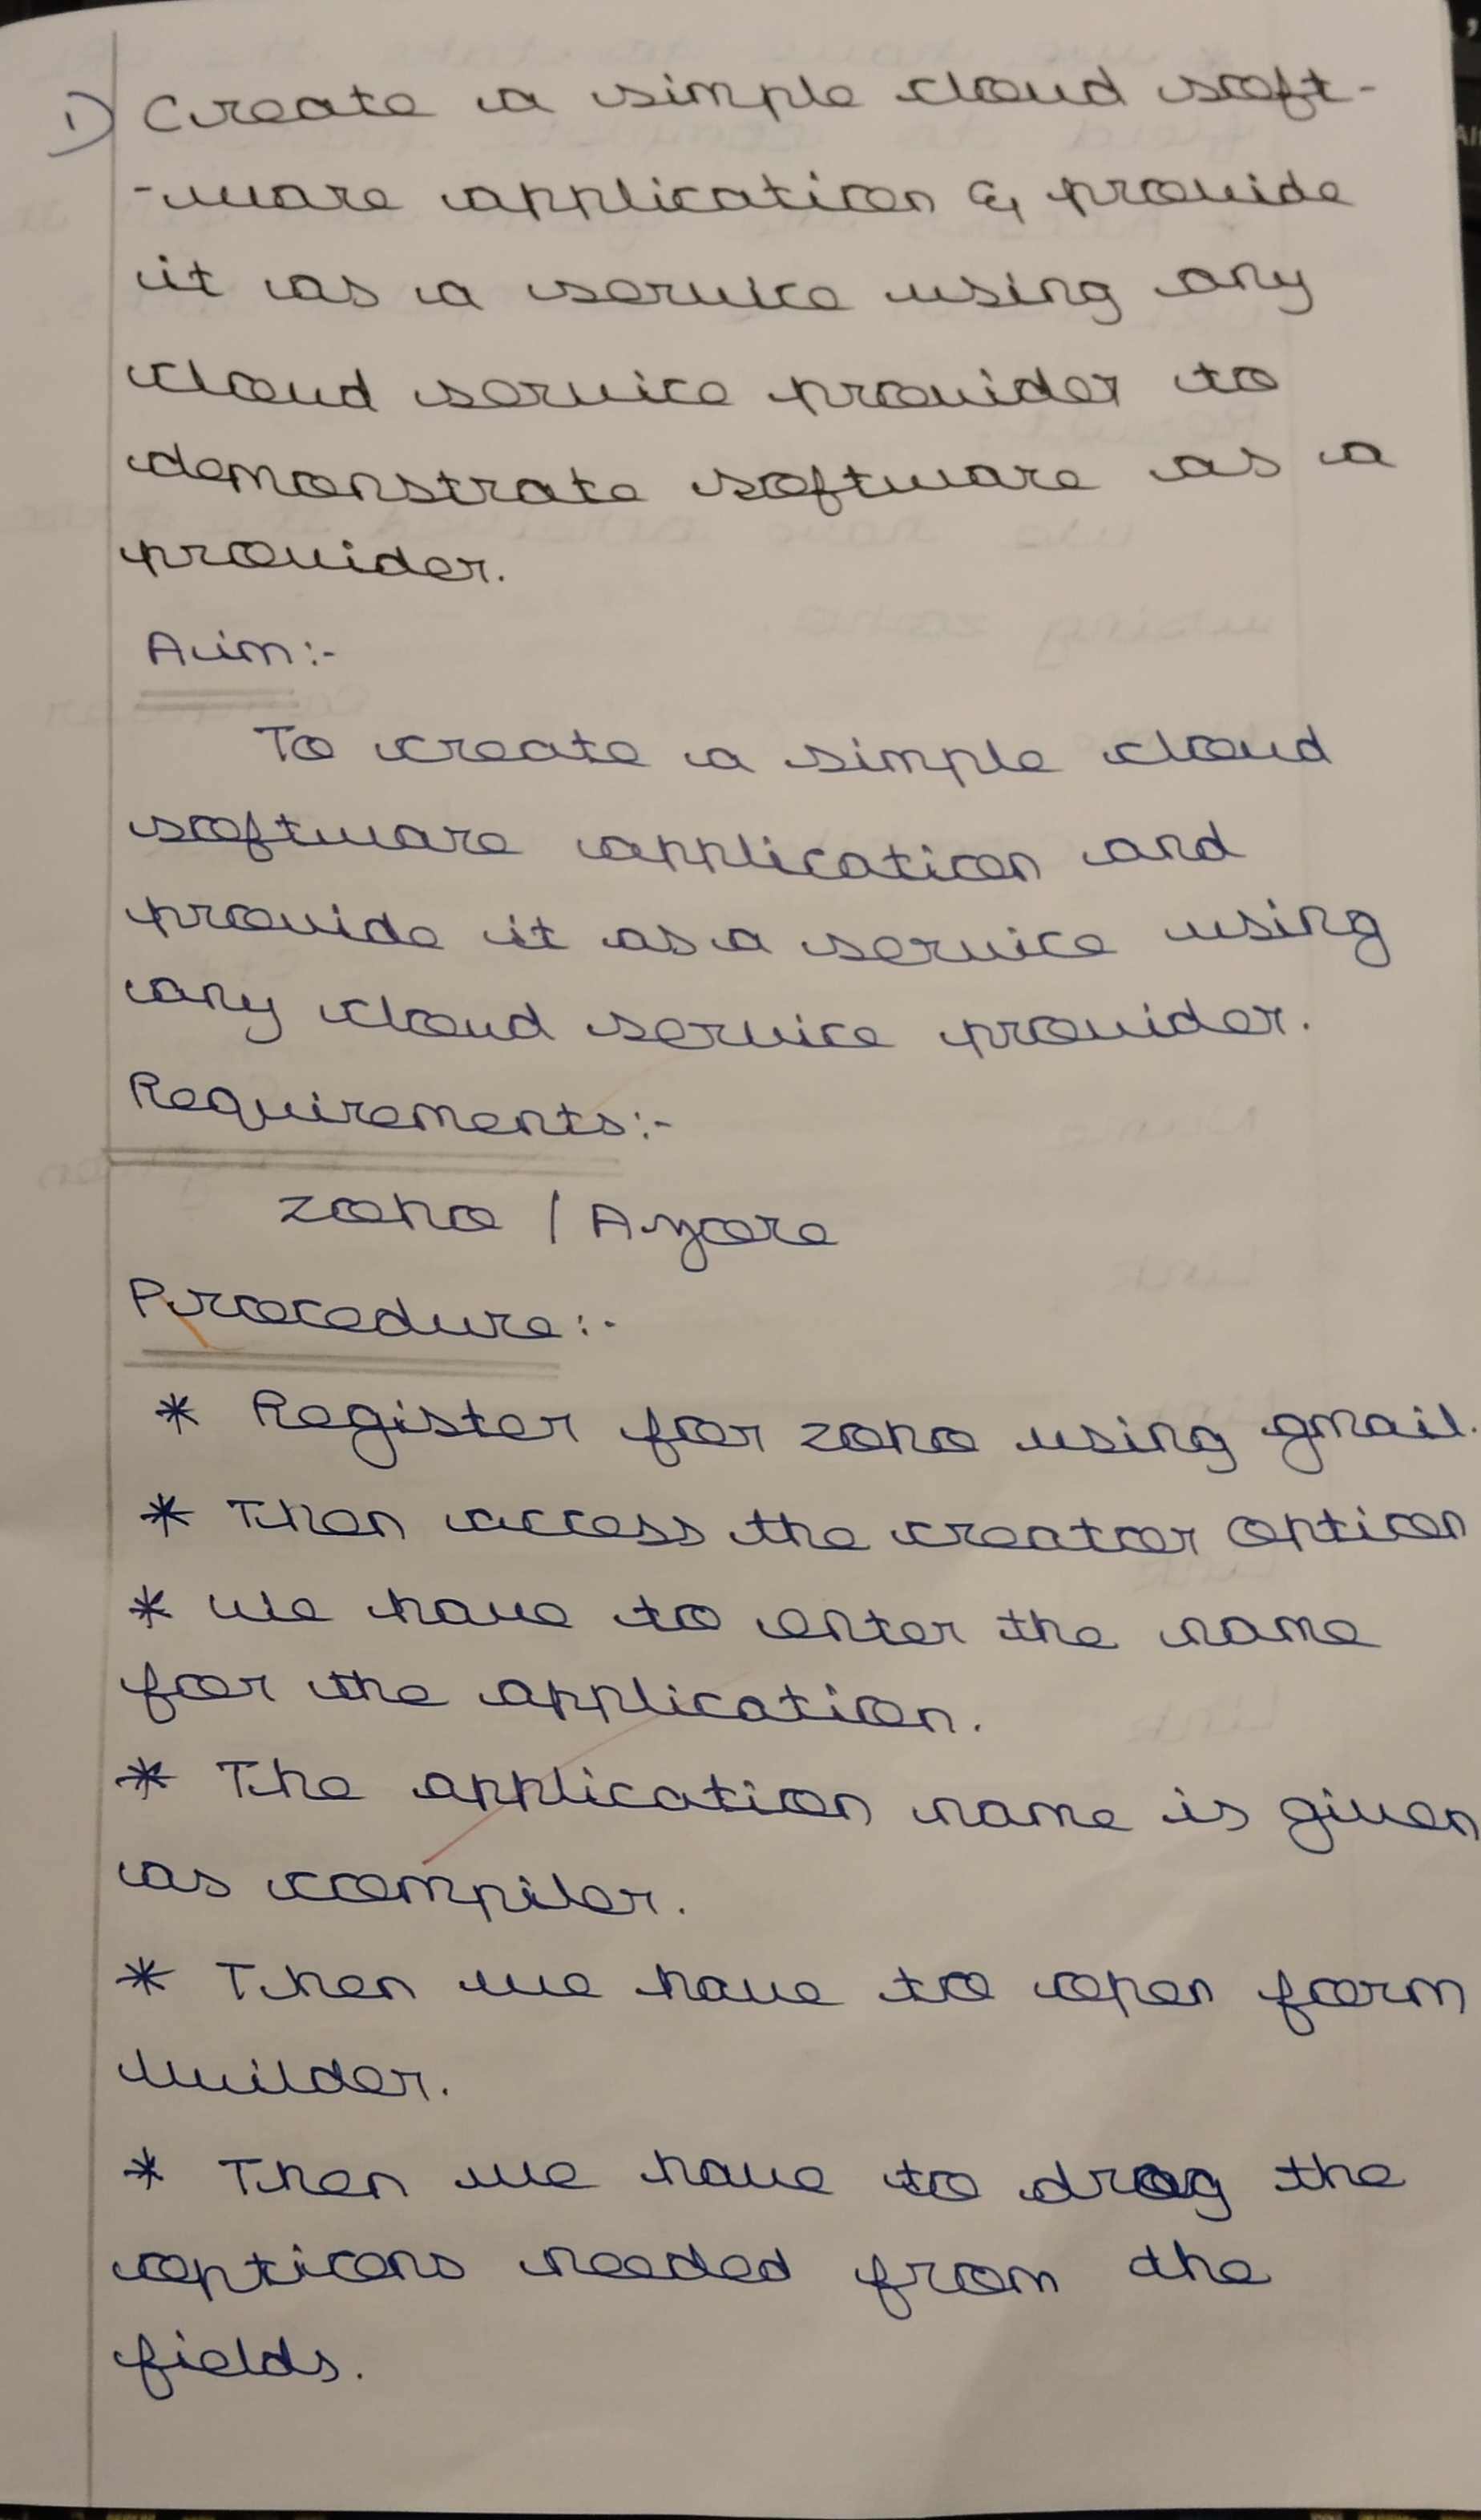 1) Create a simple cloud soft-
-ware application & provide
it as a service using any
cloud service provider to
demonstrate software as a
provider.
Aim:-
To create a simple cloud
software application and
provide it as a service using
any cloud service provider.
Requirements:-
zoho / Azore
Procedure:-
* Register for zoho using gmail.
* Then access the creator option
* We have to enter the name
for the application.
* The application name is given
as compiler.
* Then we have to open form
builder.
* Then we have to drag the
options needed from the
fields.